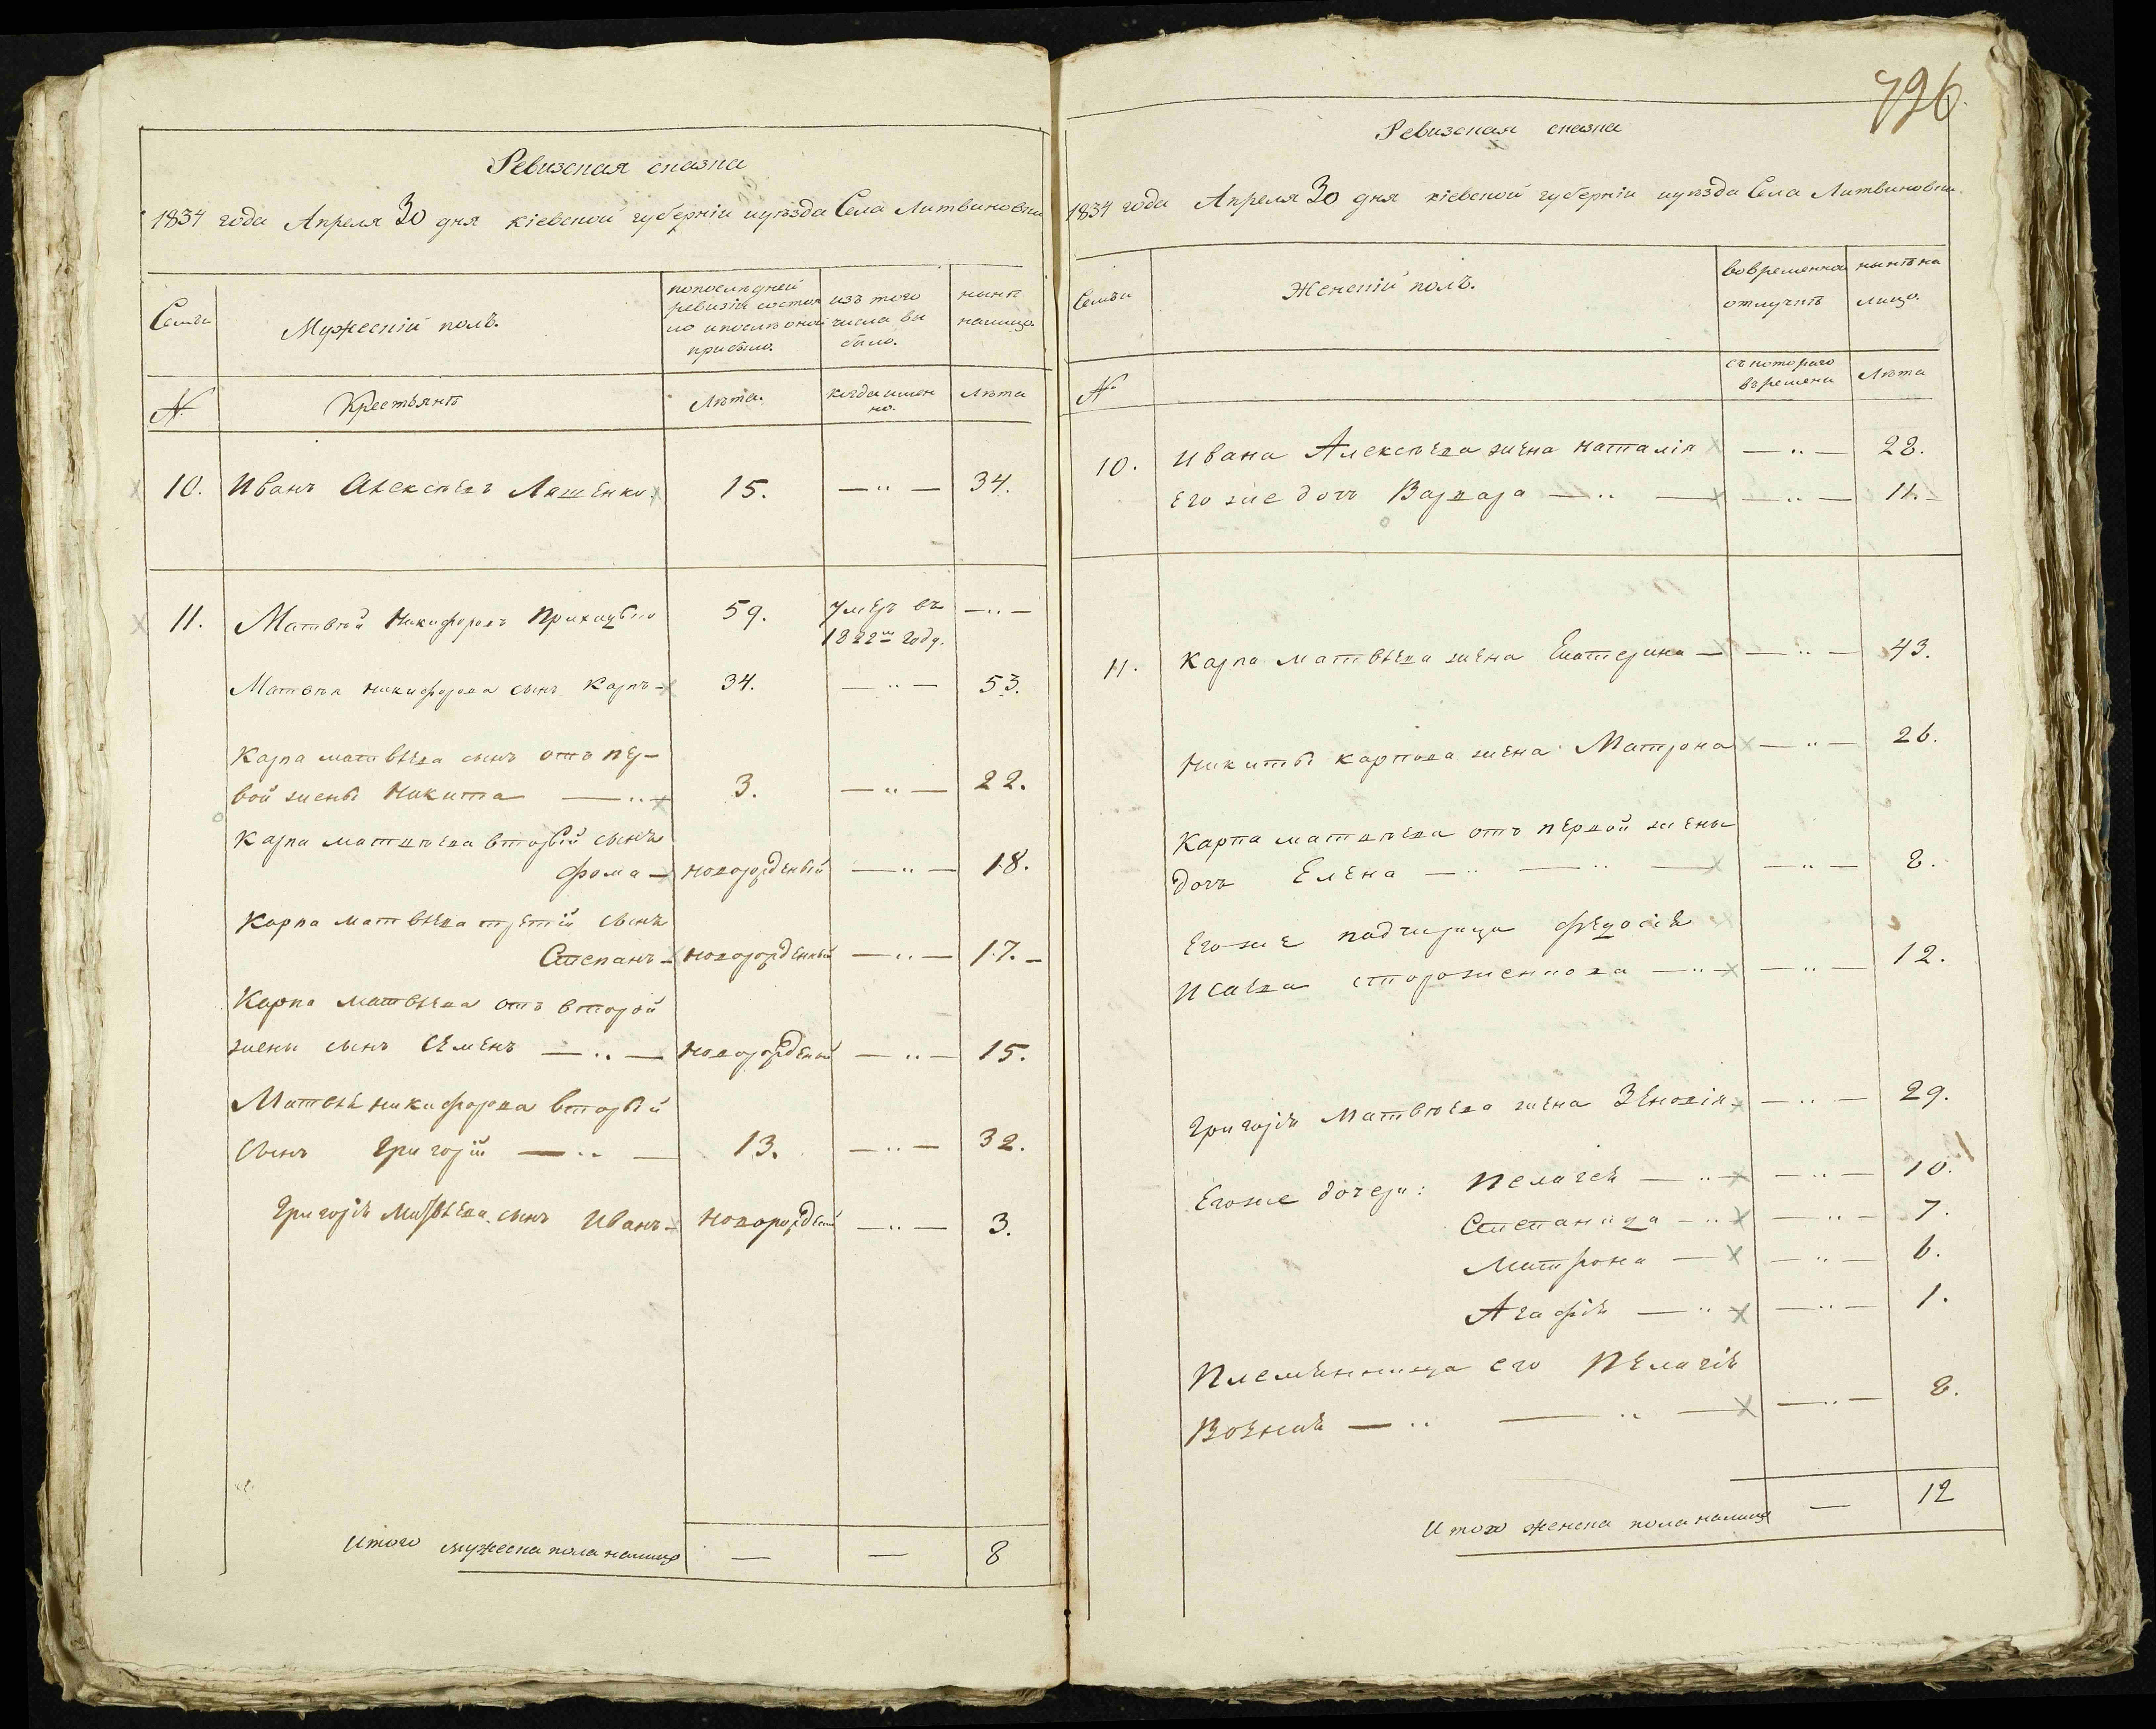 Ревизская сказка
1834 года Апреля 30 дня кіевской губерніи и уѣзда Села Литвиновки
Семьи
Мужескій полъ.
по последней
ревизіи состоя
ло и после оной
прибыло.
изъ того
числа вы
было.
нынѣ
налицо
№
Крестьянѣ
Лѣта.
когда имен
но.
Лѣта
10. Иванъ Алексѣевъ Ляшенко 15. — „ — 34.
11. Матвѣй Никифоровъ 59. умеръ въ — „ —
1822м году.
Матвѣя Никифорова сынъ Карпъ 34. — „ — 53.
Карпа Матвѣева сынъ отъ пер-
вой жены Никита — „ 3. — „ — 22.
Карпа Матвѣева вторый сынъ
Фома — новорожденый — „ — 18.
Карпа Матвѣева третій сынъ
Степанъ новорожденный — „ — 17.
Карпа Матвѣева отъ второй
жены сынъ Семенъ — „ — новорожденый — „ — 15.
Матвѣя Никифорова вторый
сынъ Григорій — „ — 13. — „ — 32.
Григорія Матвѣева сынъ Иванъ новорожденый — „ — 3.
Итого мужеска пола налицо — — 8
796
Ревизская сказка
1834 года Апреля 30 дня кіевской губерніи и уѣзда Села Литвиновки
Семьи
Женскій полъ.
во временной
отлучкѣ
нынѣ на
лицо.
№
съ котораго
времени
Лѣта
10. Ивана Алексѣева жена Наталія — „ — 28.
Его же дочь Варвара — „ — — „ — 11.
11. Карпа Матвѣева жена Екатерина — — „ — 43.
Никиты Карпова жена Матрона — „ — 26.
Карпа Матвѣева отъ первой жены
дочь Елена — „ — „ — — „ — 8.
Его же падчерица Федосія
Исаева стороженкова — „ — — „ — 12.
Григорія Матвѣева жена Зеновія — „ — 29.
Его же дочери: Пелагея — „ — — „ — 10.
Степанида — „ — „ — 7.
Матрона — — „ — 6.
Агафія — „ — „ — 1.
Племенница его Пелагія
— „ — „ — — „ — 8.
Итого женска пола налицо — 12